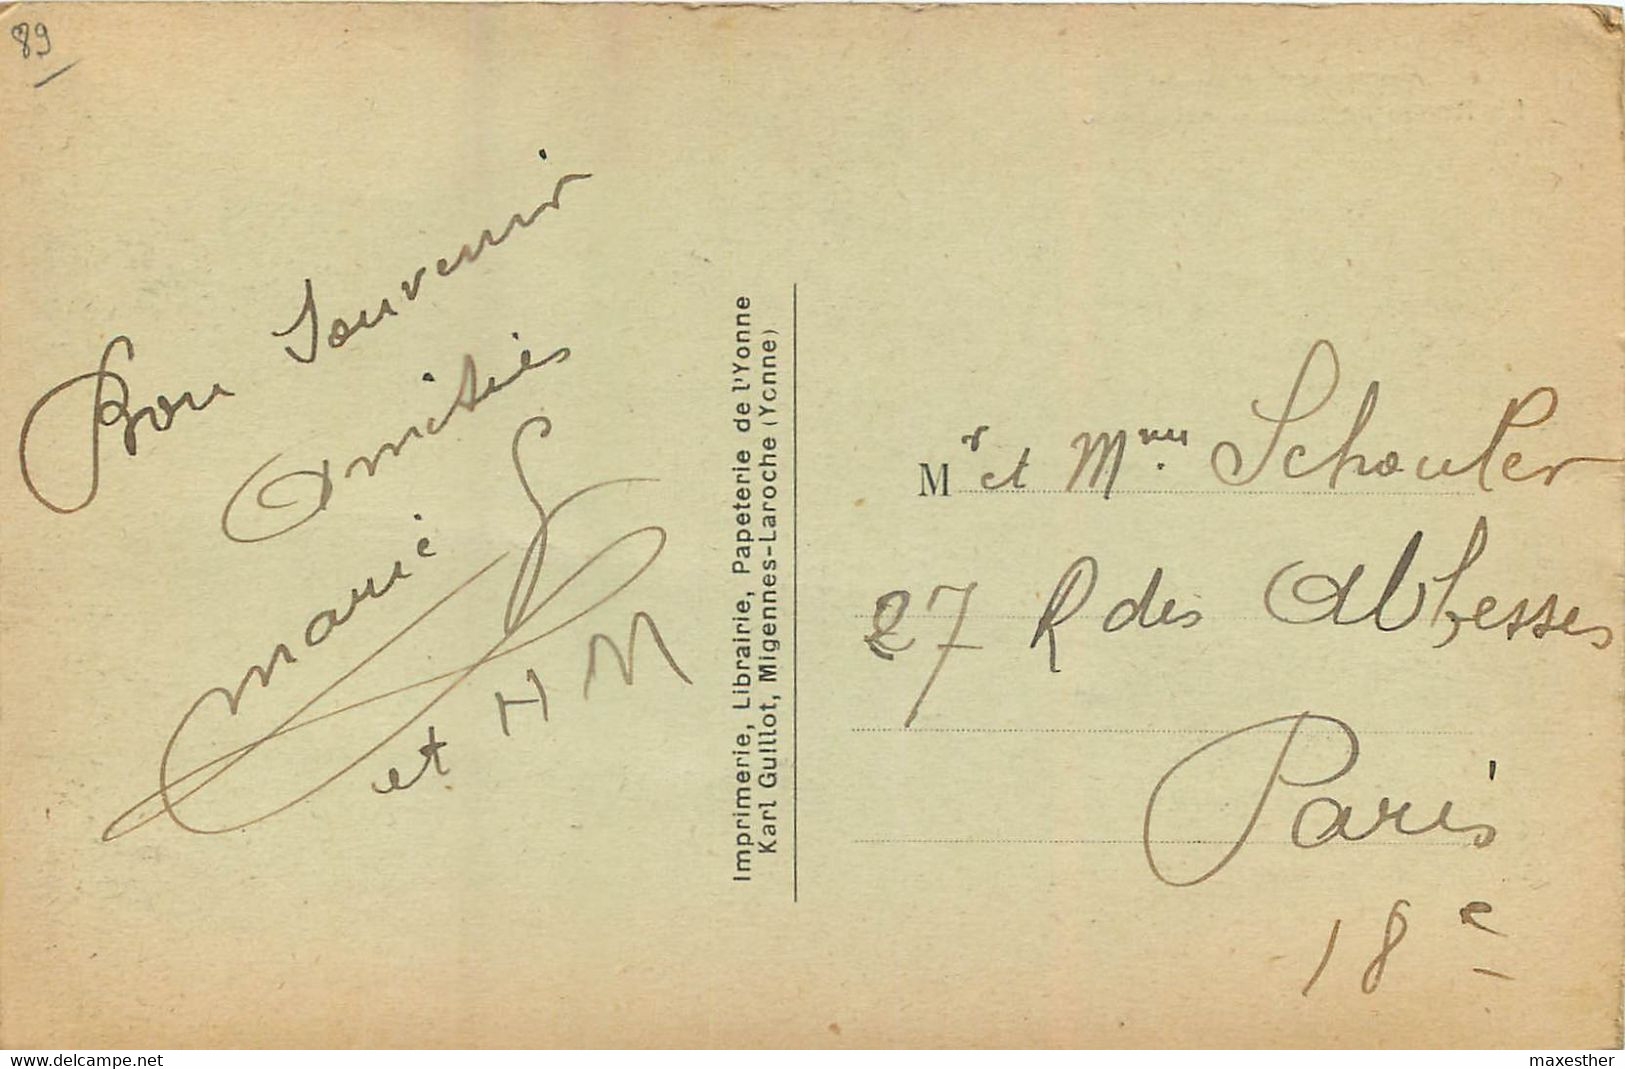 89
Bon Souvenir
Amitiés
Marie
et H M
Imprimerie, Librairie, Papeterie de l'Yonne
Karl Guillot, Migennes-Laroche (Yonne)
Mr et Mme Schouler
27 R des Abbesses
Paris
18e
www.delcampe.net
maxesther